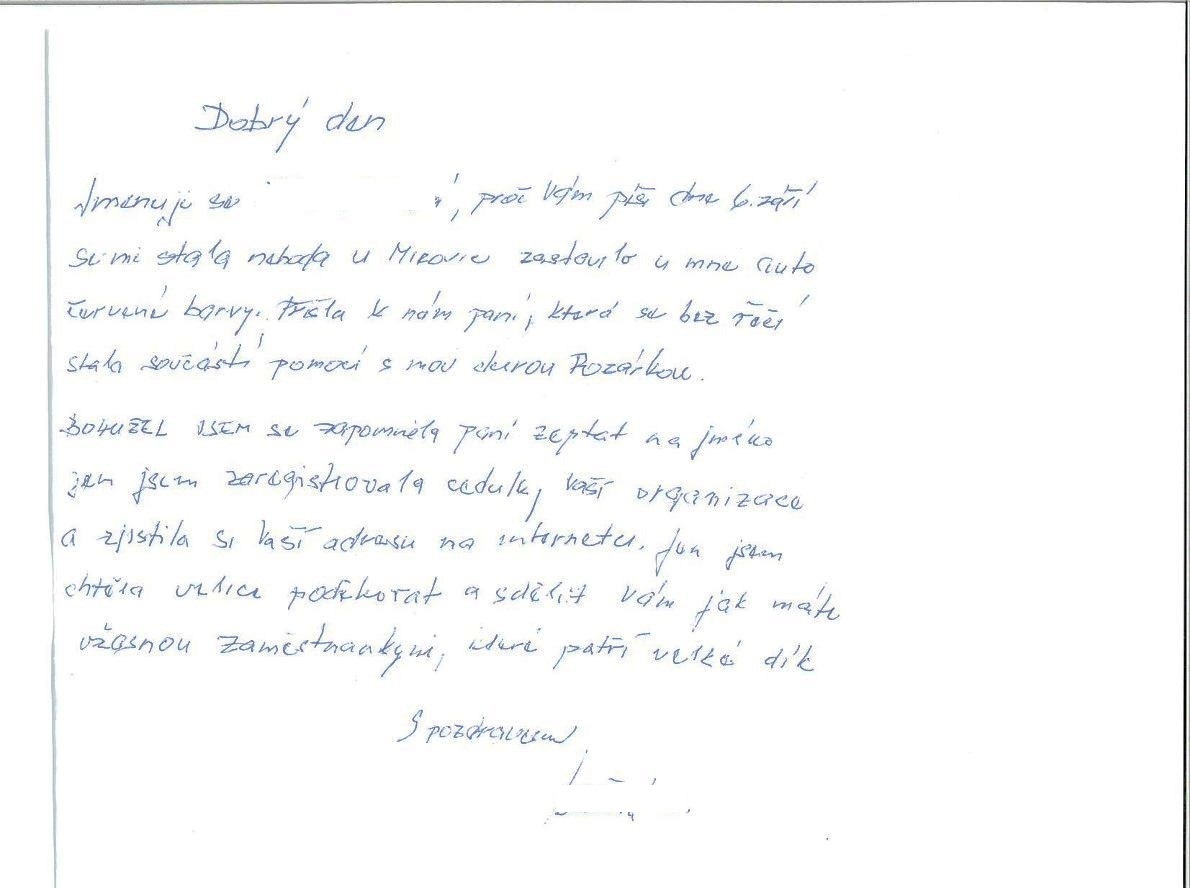 Dobrý den
Jmenuji se , proč Vám píši dne 6. září
se mi stala nehoda u Mirovic zastavilo u mne auto
červené barvy. Přišla k nám paní, která se bez řečí
stala součástí pomoci s mou dcerou Rozárkou.
BOHUŽEL JSEM se zapomněla paní zeptat na jméno
jen jsem zaregistrovala cedulky Vaší organizace
a zjistila si Vaší adresu na internetu. Jen jsem
chtěla velice poděkovat a sdělit Vám jak máte
úžasnou zaměstnankyni, které patří velké dík
S pozdravem